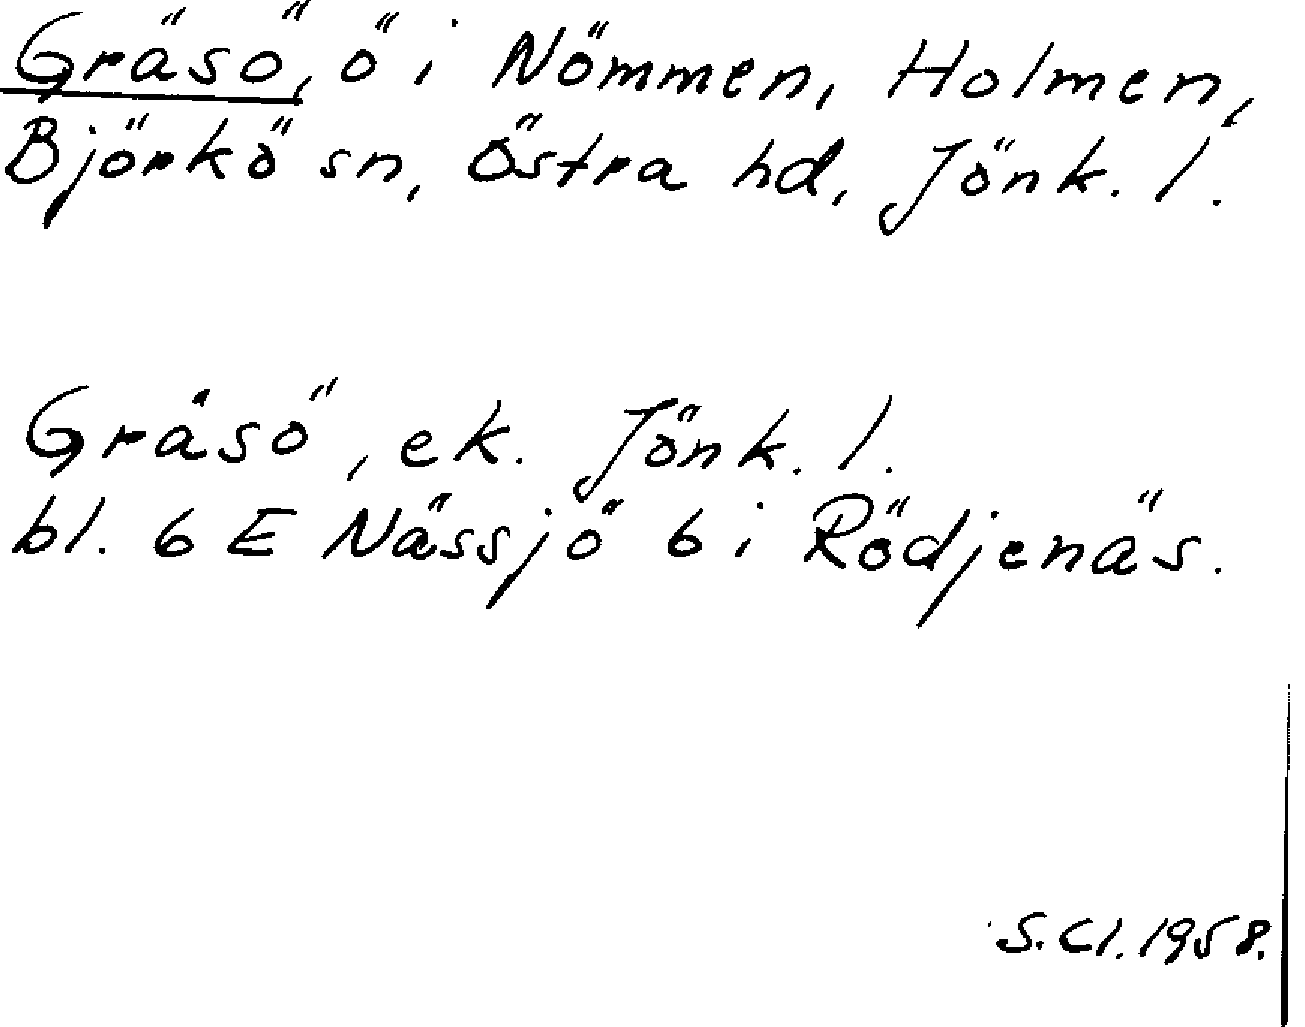 Gräsö, ö i Nömmen, Holmen,
Björkö sn, Östra hd, Jönk. l.
Gräsö, ek. Jönk. l.
bl. 6 E Nässjö 6 i Rödjenäs.
S. Cl. 1958.